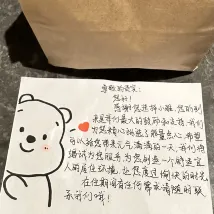 尊敬的贵宾：
您好！
感谢您选择小雅，您的到
来是我们最大的鼓励和支持，我们
为您精心挑选了能量点心，希望
可以给您带来元气满满的一天，我们将
继续为您服务，为您创造一个舒适宜
人的居住环境，让您度过愉快的时光
在住期间有任何需求请随时联
系我们哦！